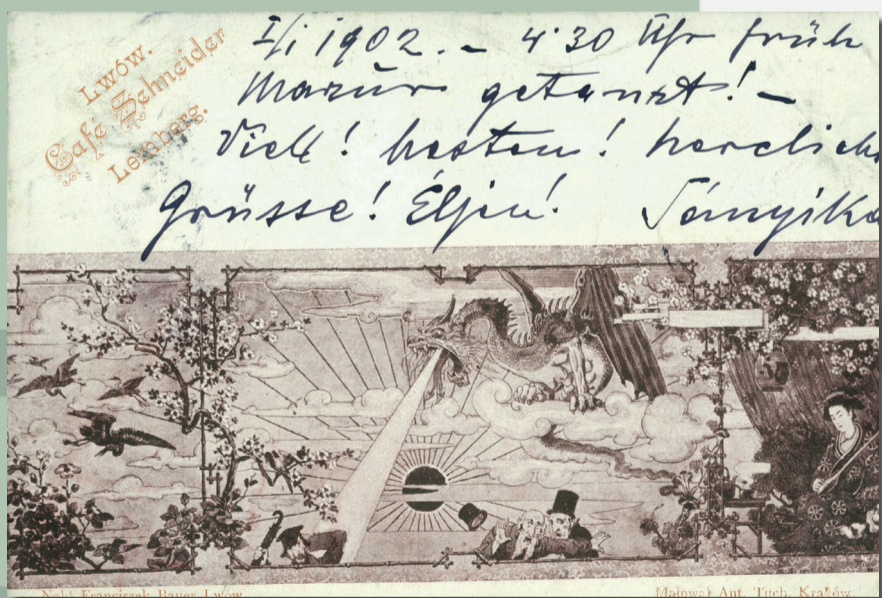 Lwów.
Café Schneider
Lemberg.
I/I 1902. – 4·30 Uhr früh
Mazur getanzt! –
Viell! besten! herzlich
Grüsse! Éljen!
Nakł. Franciszek Bauer Lwów.
Malował Ant. Tuch, Kraków.